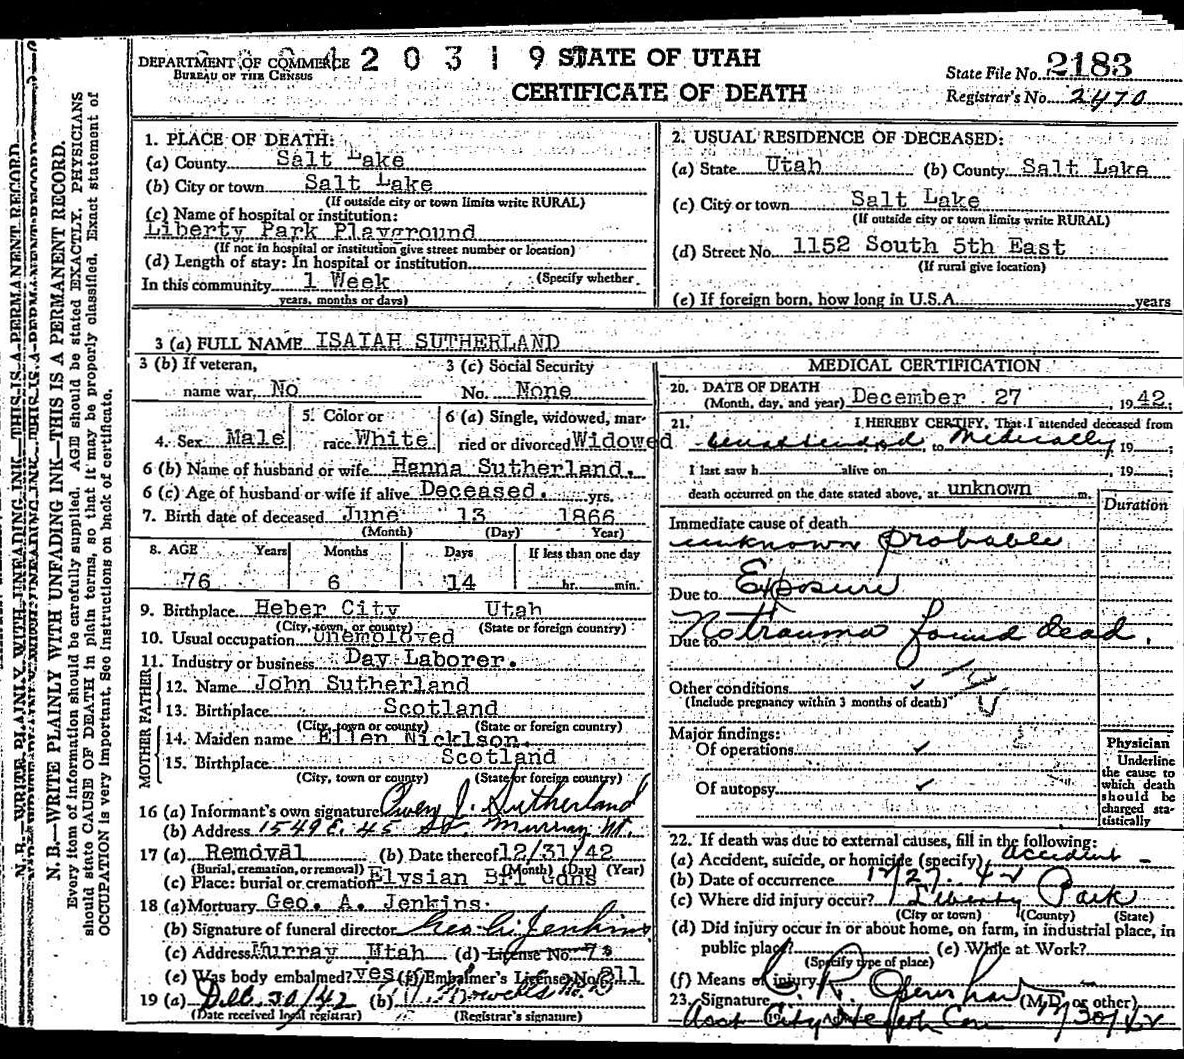 DEPARTMENT OF COMMERCE
BUREAU OF THE CENSUS
2 0 3 1 9
STATE OF UTAH
CERTIFICATE OF DEATH
State File No. 2183
Registrar's No. 2470
N. B.—WRITE PLAINLY WITH UNFADING INK—THIS IS A PERMANENT RECORD.
Every item of information should be carefully supplied. AGE should be stated EXACTLY. PHYSICIANS
should state CAUSE OF DEATH in plain terms, so that it may be properly classified. Exact statement of
OCCUPATION is very important. See instructions on back of certificate.
1. PLACE OF DEATH:
(a) County Salt Lake
(b) City or town Salt Lake
(If outside city or town limits write RURAL)
(c) Name of hospital or institution:
Liberty Park Playground
(If not in hospital or institution give street number or location)
(d) Length of stay: In hospital or institution
(Specify whether
In this community 1 Week
years, months or days)
2. USUAL RESIDENCE OF DECEASED:
(a) State Utah (b) County Salt Lake
(c) City or town Salt Lake
(If outside city or town limits write RURAL)
(d) Street No. 1152 South 5th East
(If rural give location)
(e) If foreign born, how long in U.S.A. years
3 (a) FULL NAME ISAIAH SUTHERLAND
3 (b) If veteran,
name war, No
3 (c) Social Security
No. None
4. Sex Male
5. Color or
race White
6 (a) Single, widowed, mar-
ried or divorced Widowed
6 (b) Name of husband or wife Hanna Sutherland.
6 (c) Age of husband or wife if alive Deceased. yrs.
7. Birth date of deceased June 13 1866
(Month) (Day) Year)
8. AGE Years Months Days If less than one day
76 6 14 hr. min.
9. Birthplace Heber City Utah
(City, town, or county) (State or foreign country)
10. Usual occupation Unemployed
11. Industry or business Day Laborer.
FATHER
12. Name John Sutherland
13. Birthplace Scotland
(City, town or county) (State or foreign country)
MOTHER
14. Maiden name Ellen Nicklson.
15. Birthplace Scotland
(City, town or county) (State or foreign country)
16 (a) Informant's own signature Owen J. Sutherland
(b) Address 1549 E. 45 So. Murray Ut.
17 (a) Removal (b) Date thereof 12/31/42
(Burial, cremation, or removal) (Month) (Day) (Year)
(c) Place: burial or cremation Elysian Brl Gdns
18 (a) Mortuary Geo. A. Jenkins.
(b) Signature of funeral director Geo. A. Jenkins
(c) Address Murray Utah (d) License No. 73
(e) Was body embalmed? yes (f) Embalmer's License No. 211
19 (a) Dec. 30/42 (b)
(Date received local registrar) (Registrar's signature)
MEDICAL CERTIFICATION
20. DATE OF DEATH
(Month, day, and year) December 27, 1942;
21. I HEREBY CERTIFY, That I attended deceased from
unattended, 19 to Medically, 19 ;
I last saw h alive on , 19 ;
death occurred on the date stated above, at unknown m.
Duration
Immediate cause of death
unknown probable
Due to Exposure
Due to No trauma found dead.
Other conditions ✓
(Include pregnancy within 3 months of death)
Major findings:
Of operations ✓
Of autopsy ✓
Physician
Underline
the cause to
which death
should be
charged sta-
tistically
22. If death was due to external causes, fill in the following:
(a) Accident, suicide, or homicide (specify) accident
(b) Date of occurrence 12/27. 42
(c) Where did injury occur? Liberty Park
(City or town) (County) (State)
(d) Did injury occur in or about home, on farm, in industrial place, in
public place? (e) While at Work?
(Specify type of place)
(f) Means of injury
23. Signature (M.D. or other)
Asst City Health Com 12/30/42